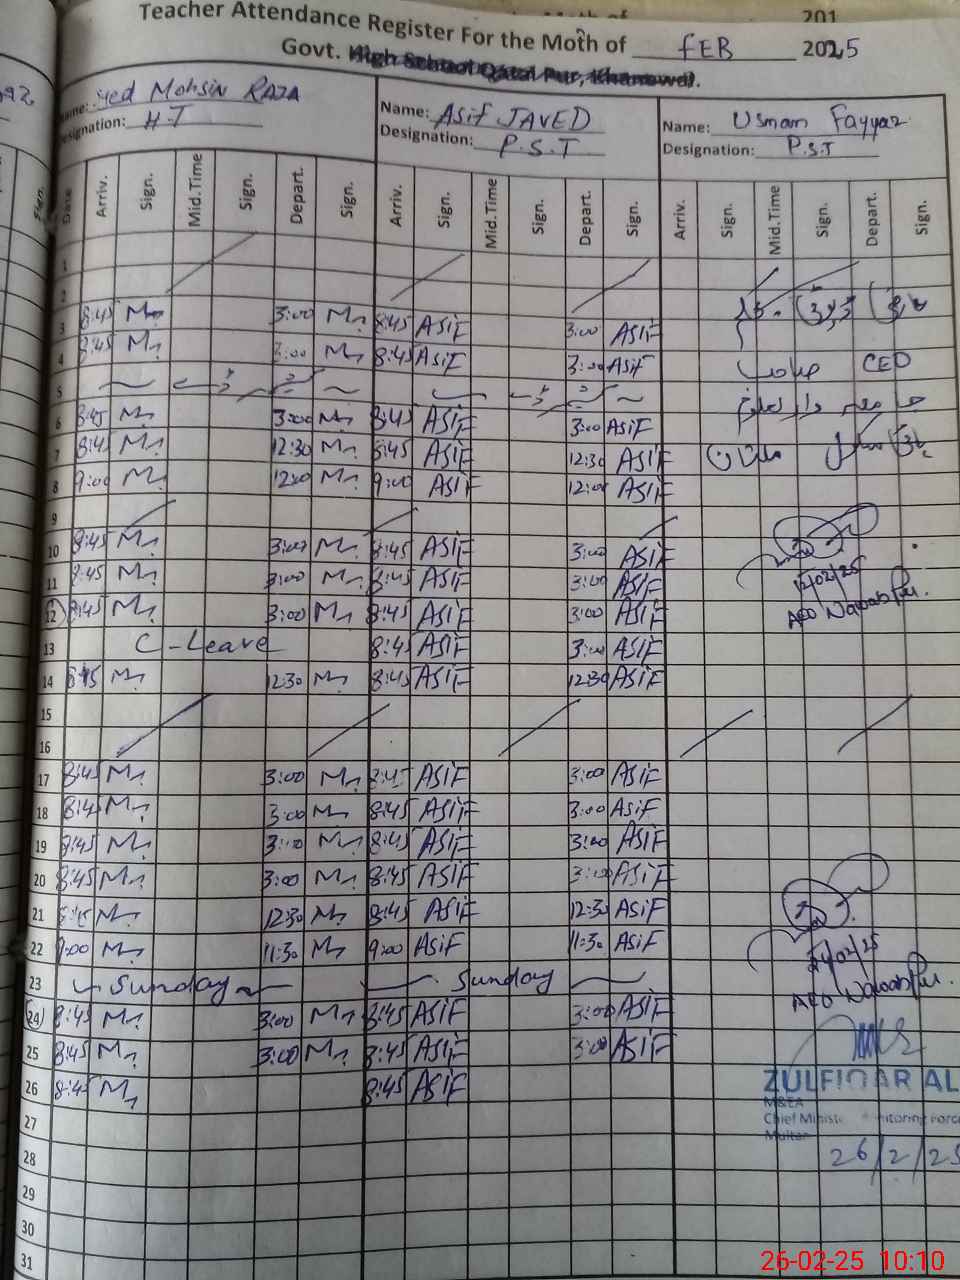 201
Teacher Attendance Register For the Moth of FEB 2025
Govt. High School Qatal Pur, Khanewal.
Name: Syed Mohsin RAZA Name: Asif JAVED Name: Usman Fayyaz
Designation: H.T Designation: P.S.T Designation: P.S.T
Date Arriv. Sign. Mid.Time Sign. Depart. Sign. Arriv. Sign. Mid.Time Sign. Depart. Sign. Arriv. Sign. Mid.Time Sign. Depart. Sign.
1
2
3 8:45 M 3:00 M 8:45 ASIF 3:00 ASIF
4 8:45 M 3:00 M 8:45 ASIF 3:00 ASIF CED
5
6 8:45 M 3:00 M 8:45 ASIF 3:00 ASIF
7 8:45 M 12:30 M 8:45 ASIF 12:30 ASIF
8 9:00 M 12:00 M 9:00 ASIF 12:00 ASIF
9
10 8:45 M 3:00 M 8:45 ASIF 3:00 ASIF
11 8:45 M 3:00 M 8:45 ASIF 3:00 ASIF 12/02/25
12 8:45 M 3:00 M 8:45 ASIF 3:00 ASIF AEO Nawab Pur.
13 C-Leave 8:45 ASIF 3:00 ASIF
14 8:45 M 12:30 M 8:45 ASIF 12:30 ASIF
15
16
17 8:45 M 3:00 M 8:45 ASIF 3:00 ASIF
18 8:45 M 3:00 M 8:45 ASIF 3:00 ASIF
19 8:45 M 3:00 M 8:45 ASIF 3:00 ASIF
20 8:45 M 3:00 M 8:45 ASIF 3:00 ASIF
21 8:45 M 12:30 M 8:45 ASIF 12:30 ASIF
22 9:00 M 11:30 M 9:00 ASIF 11:30 ASIF 24/02/25
23 Sunday Sunday AEO Nawab Pur.
24 8:45 M 3:00 M 8:45 ASIF 3:00 ASIF
25 8:45 M 3:00 M 8:45 ASIF 3:00 ASIF
26 8:45 M 8:45 ASIF ZULFIQAR AL
M&EA
27 Chief Ministe Monitoring Force
Multan
28 26/2/25
29
30
31
26-02-25 10:10